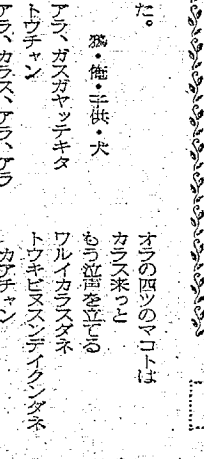 オラの四ツのマコトは
カラス来っと
もう泣声を立てる
ワルイカラスダネ
トウキビヌスンデイクンダネ
カアチャン
た。
鴉・俺・子供・犬
アラ、ガスガヤッテキタ
トウチャン
アラ、カラス、アラ、アラ